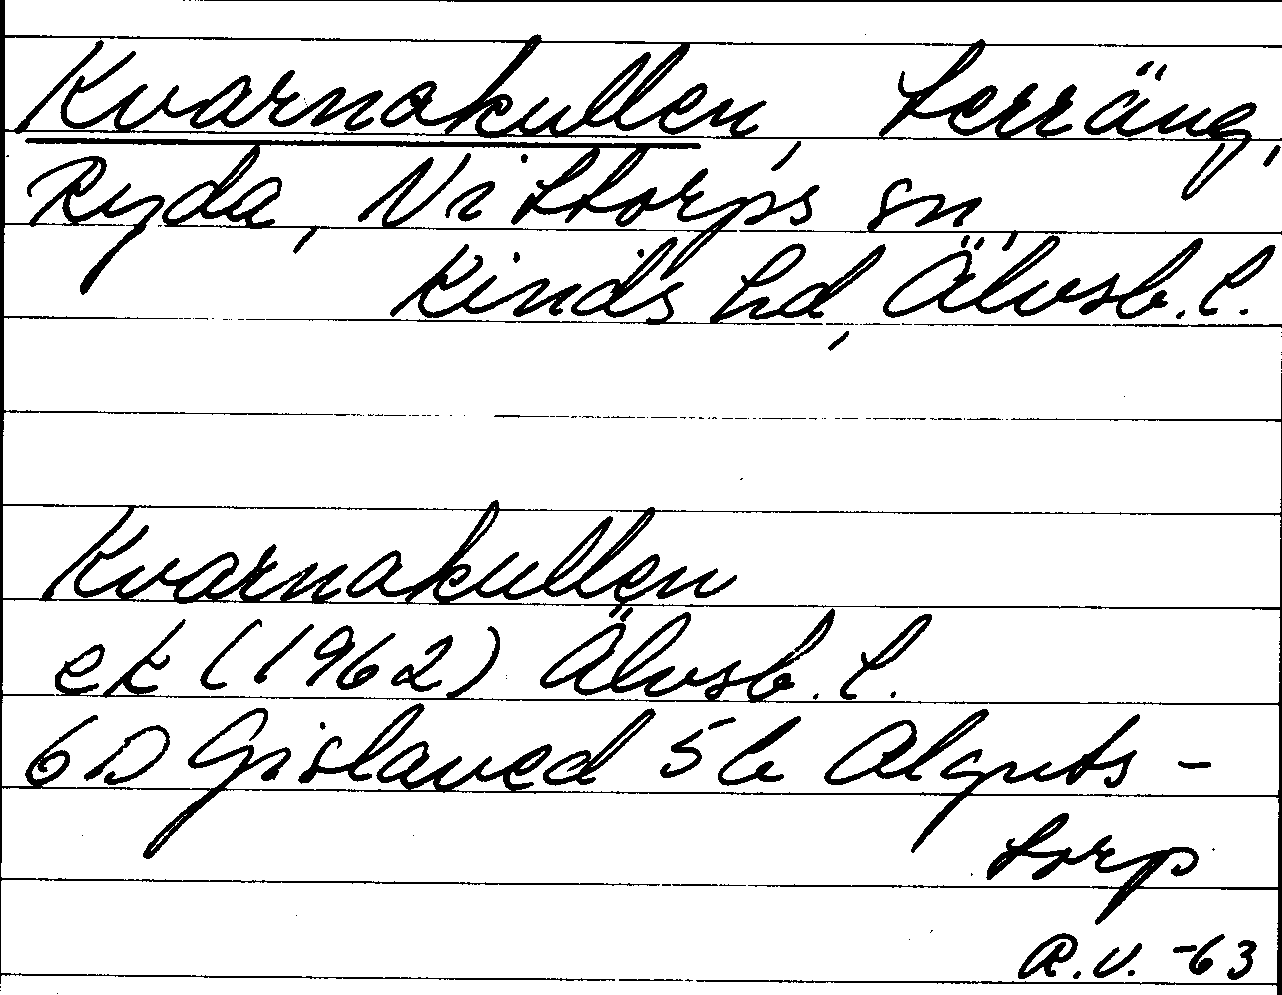 Kvarnakullen, terräng,
Ryda, Nittorps sn,
Kinds hd, Älvsb. l.
Kvarnakullen
ek (1962) Älvsb. l.
6D Gislaved 5b Alguts-
torp
R.V. -63